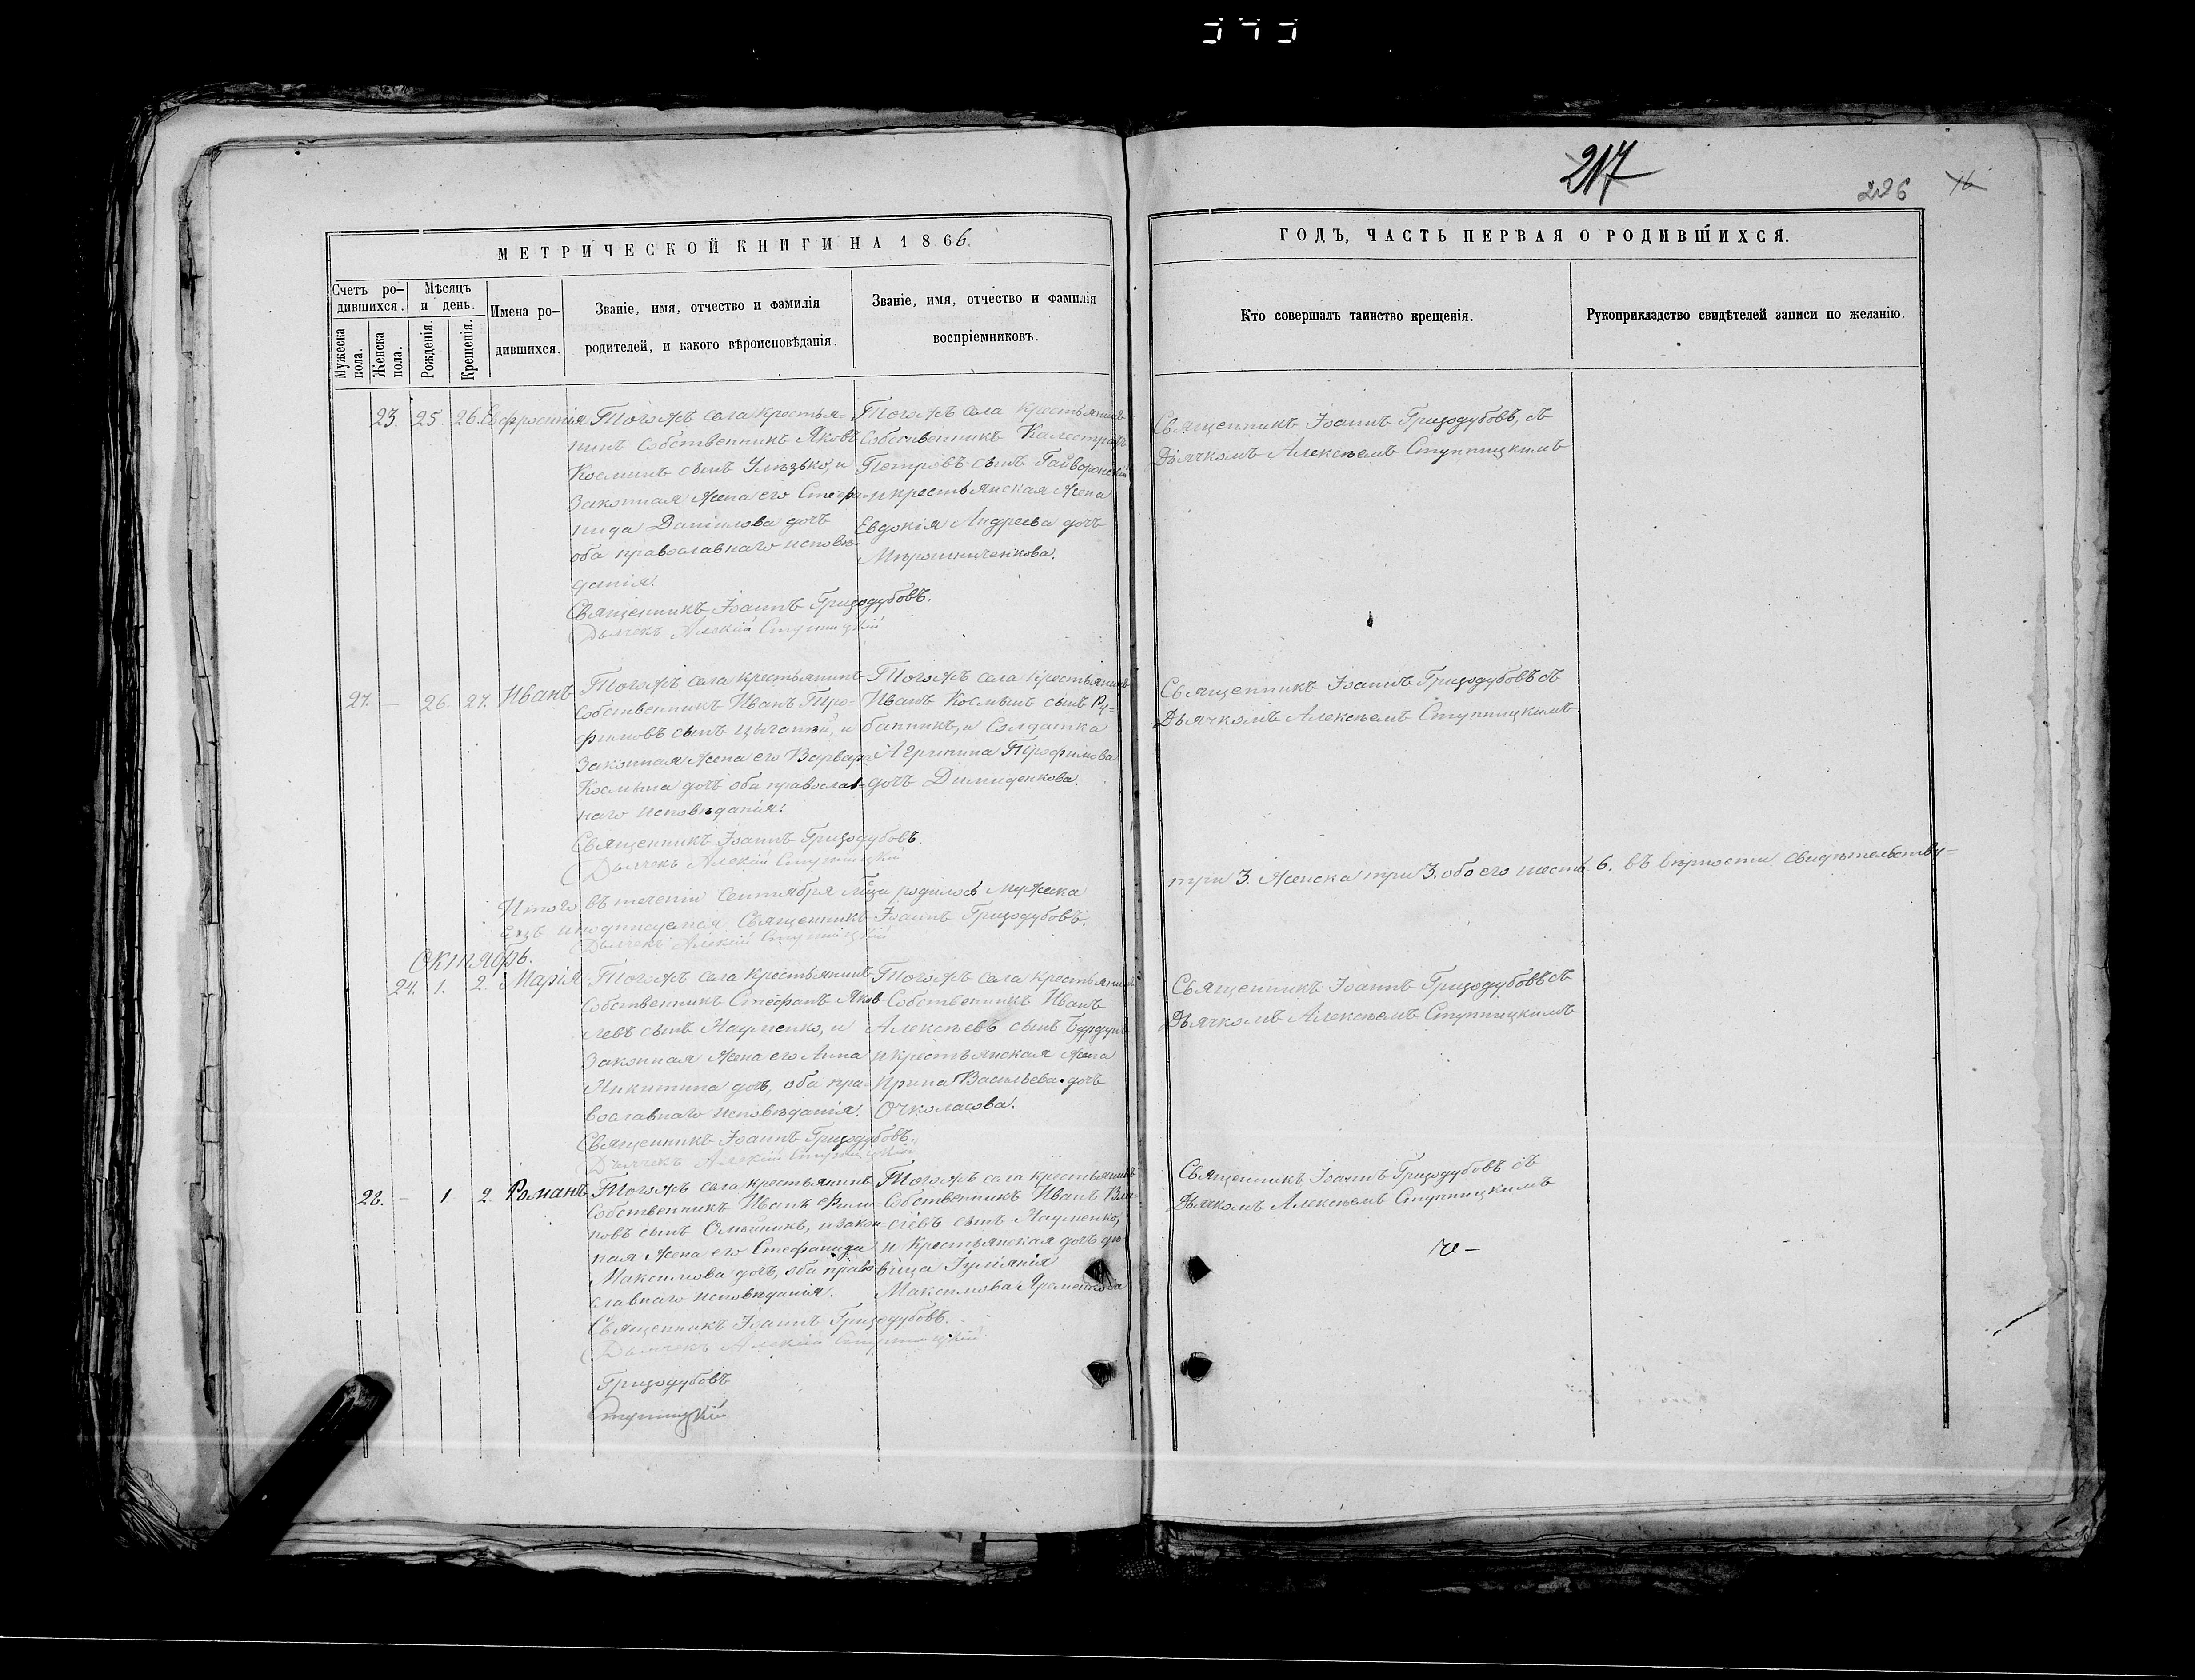 217
226 16
МЕТРИЧЕСКОЙ КНИГИ НА 1866.
ГОДЪ, ЧАСТЬ ПЕРВАЯ О РОДИВШИХСЯ.
Счетъ ро-
дившихся.
Мужеска
пола.
Женска
пола.
Мѣсяцъ
и день.
Рожденія.
Крещенія.
Имена ро-
дившихся.
Званіе, имя, отчество и фамилія
родителей, и какого вѣроисповѣданія.
Званіе, имя, отчество и фамилія
воспріемниковъ.
Кто совершалъ таинство крещенія.
Рукоприкладство свидѣтелей записи по желанію.
23. 25. 26. Евфросинія
Тогожъ села крестья-
нинъ Собственникъ Яковъ
Косминъ сынъ и
Законная Жена его Степа-
нида Даніилова дочь
оба православнаго исповѣ-
данія.
Священникъ Іоаннъ Гризодубовъ.
Дьячекъ Алексій Ступницкій
Тогожъ села крестьянинъ
Собственникъ Калестратъ
Петровъ сынъ Гайворонскій
и крестьянская Жена
Евдокія Андреева дочь
Мирошниченкова.
Священникъ Іоаннъ Гризодубовъ, съ
Дьячкомъ Алексѣемъ Ступницкимъ
27. — 26. 27. Иванъ
Тогожъ села крестьянинъ
Собственникъ Иванъ Тро-
фимовъ сынъ Цыганъ, и
Законная Жена его Варвара
Космына дочь оба православ-
наго исповѣданія.
Священникъ Іоаннъ Гризодубовъ.
Дьячекъ Алексій Ступницкій
Тогожъ села крестьянинъ
Иванъ Космынъ сынъ Ру-
банникъ, и Солдатка
Агрипина Трофимова
дочь Димиденкова.
Священникъ Іоаннъ Гризодубовъ съ
Дьячкомъ Алексѣемъ Ступницкимъ.
Итого въ теченіи Сентября мѣсяца родилось Мужеска
три 3. Женска три 3. обоего шесть 6. въ вѣрности свидѣтельству-
емъ и подписуемся Священникъ Іоаннъ Гризодубовъ.
Дьячекъ Алексій Ступницкій
Октябрь.
24. 1. 2. Марія
Тогожъ села крестьянинъ
Собственникъ Стефанъ Яков-
левъ сынъ Науменко, и
Законная Жена его Анна
Никитина дочь, оба пра-
вославнаго исповѣданія.
Священникъ Іоаннъ Гризодубовъ.
Дьячекъ Алексій Ступницкій
Тогожъ села крестьянинъ
Собственникъ Иванъ
Алексѣевъ сынъ Бурдунъ
и крестьянская Жена
Ирина Васильева дочь
Очколасова.
Священникъ Іоаннъ Гризодубовъ съ
Дьячкомъ Алексѣемъ Ступницкимъ
28. — 1 2. Романъ
Тогожъ села крестьянинъ
Собственникъ Иванъ Фили-
повъ сынъ Олейникъ, и закон-
ная Жена его Стефанида
Максимова дочь, оба право-
славнаго исповѣданія.
Священникъ Іоаннъ Гризодубовъ.
Дьячекъ Алексій Ступницкій
Тогожъ села крестьянинъ
Собственникъ Иванъ
сынъ Науменко,
и Крестьянская дочь дѣ-
вица Іуліанія
Максимова Яременкова
Священникъ Іоаннъ Гризодубовъ съ
Дьячкомъ Алексѣемъ Ступницкимъ
Гризодубовъ
Ступницкій